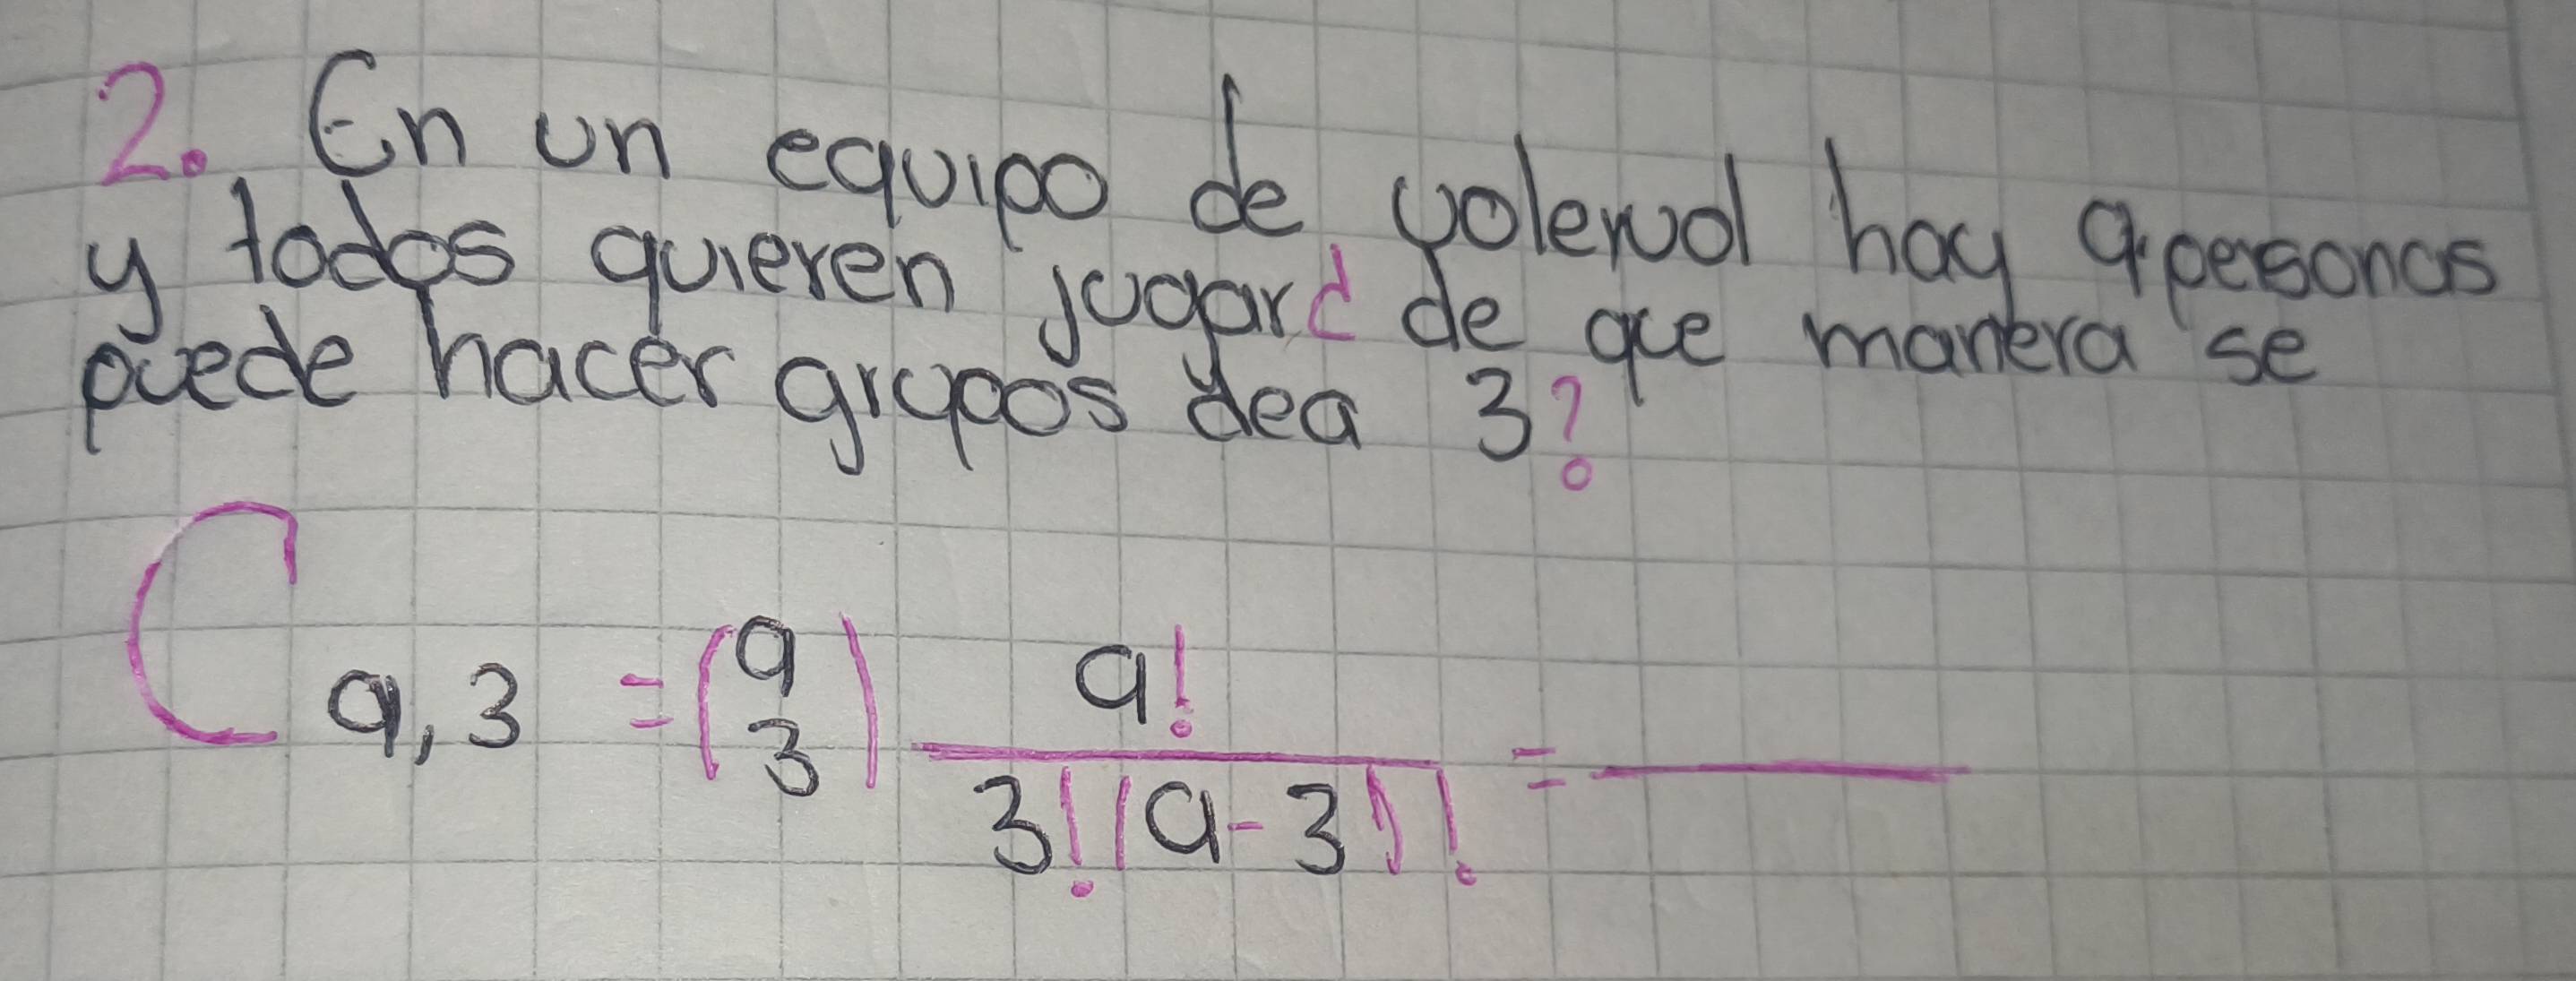 2. En un equipo de volewol hay 9 personas
y todos quieren jugar ¿ de que manera se
puede hacer grupos dea 3?
C 9,3 = (9 3) 9! / 3!(9-3)! =